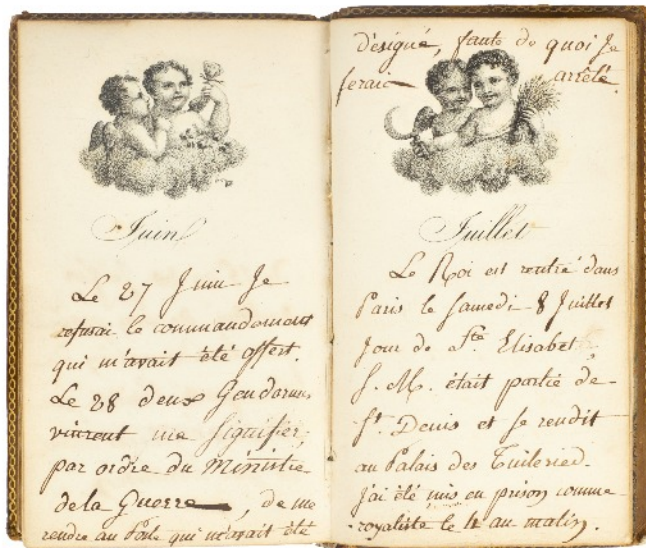 Juin
Le 27 Juin Je
refusai le commandement
qui m'avait été offert.
Le 28 deux Gendarmes
vinrent me signifier,
par ordre du Ministre
de la Guerre, de me
rendre au Poste qui m'avait été
désigné, faute de quoi Je
serais arrêté.
Juillet
Le Roi est rentré dans
Paris le Samedi 8 Juillet
Jour de Ste Elisabet,
S. M. était partie de
St. Denis et se rendit
au Palais des Tuileries.
j'ai été mis en prison comme
royaliste le 4 au matin.